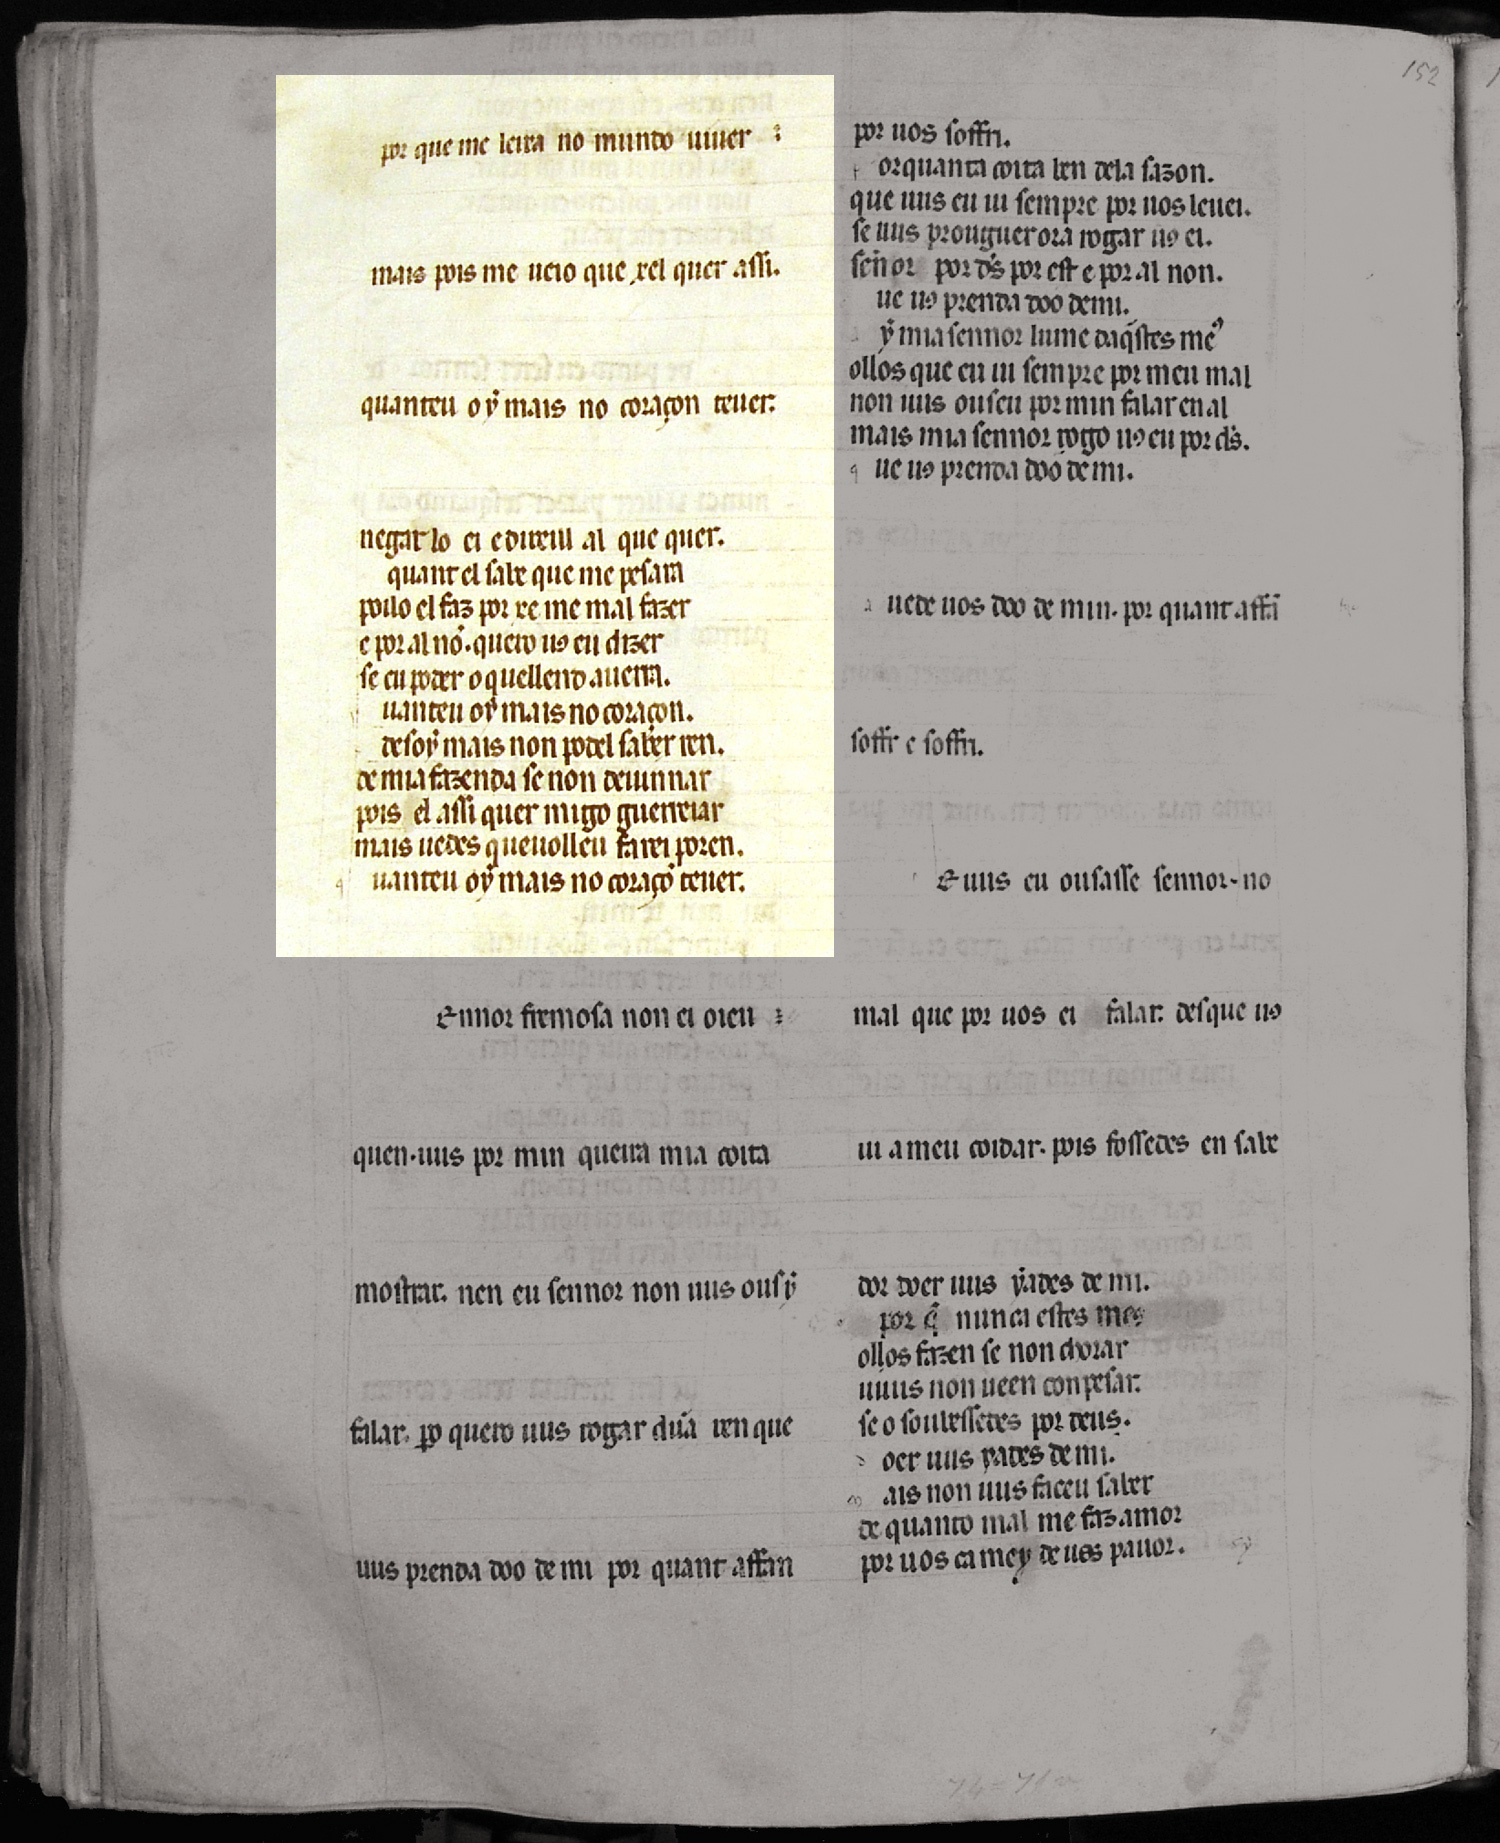 por que me leixa no mundo uiuer :
mais pois me ueio que xel quer assi.
quanteu oẏ mais no coraçon teuer.
negar lo ei e direill al que quer.
quant el sabe que me pesara
poilo el faz por xe me mal fazer
e por al nō. quero uꝯ eu dizer
se eu poder o quellendo auerra.
uanteu oẏ mais no coraçon.
desoẏ mais non podel saber ren.
de mia fazenda se non deuinnar
pois el assi quer migo guerreiar
mais uedes queuolleu farei poren.
q uanteu oẏ mais no coraçō teuer.
Ennor fremosa non ei oieu :
quen. uus por min queira mia coita
mostrar. nen eu sennor non uus ousẏ
falar. ꝑo quero uus rogar dūa ren que
uus prenda doo de mi por quant affan
por uos soffri.
orquanta coita len dela sazon.
que uus eu ui sempre por uos leuei.
se uus prouguerora rogar uꝯ ei.
sen̄or por d̄s por est e por al non.
ue uꝯ prenda doo demi.
ẏ mia sennor lume daq̄stes me᷒
ollos que eu ui sempre por meu mal
non uus ouseu por min falar en al
mais mia sennor rogo uꝯ eu por d̄s.
q ue uꝯ prenda doo de mi.
a uede uos doo de min. por quant affā
soffr e soffri.
Euus eu ousasse sennor. no
mal que por uos ei falar. desque uꝯ
ui a meu coidar. pois fossedes en sabe
dor doer uus ẏades de mi.
por q̄ nunca estes meꝯ
ollos fazen se non chorar
uuus non ueen con pesar.
se o soubessedes por deus.
oer uus ẏades de mi.
m ais non uus faceu saber
de quanto mal me faz amor
por uos ca mey de uos pauor.
152